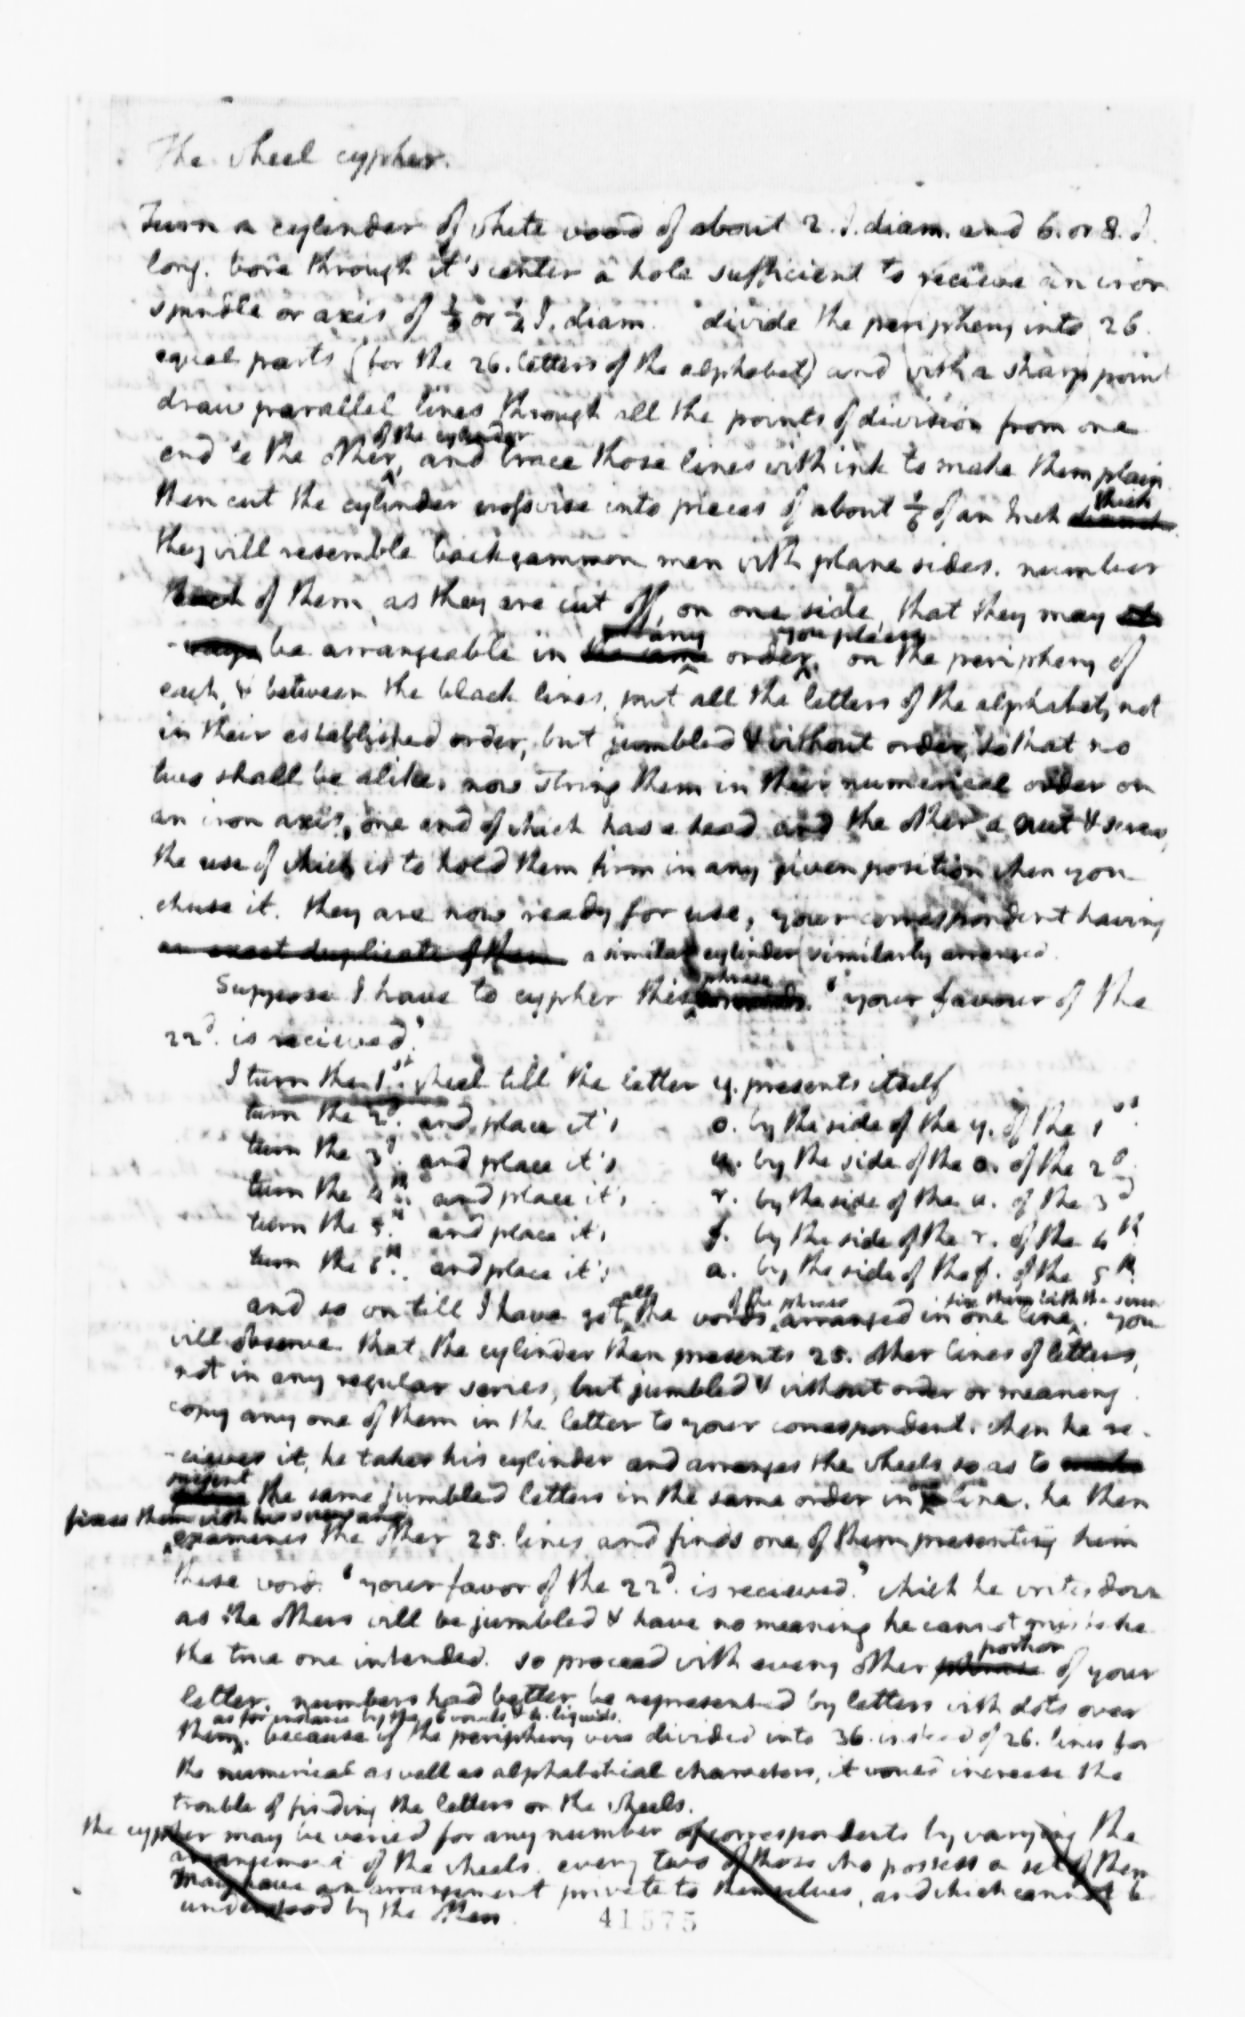 The wheel cypher.
Turn a cylinder of white wood of about 2. I. diam. and 6. or 8. I.
long. bore through it's center a hole sufficient to recieve an iron
spindle or axis of ⅛ or ¼ I. diam. divide the periphery into 26.
equal parts (for the 26. letters of the alphabet) and with a sharp point
draw parallel lines through all the points of division from one
end to the other of the cylinder, and trace those lines with ink to make them plain.
then cut the cylinder crosswise into pieces of about ⅙ of an inch thick
they will resemble backgammon men with plane sides. number
each of them as they are cut off, on one side, that they may
be arrangeable in any order you please. on the periphery of
each, & between the black lines, put all the letters of the alphabet, not
in their established order, but jumbled & without order, so that no
two shall be alike. now string them in their numerical order on
an iron axis, one end of which has a head and the other a nut & screw,
the use of which is to hold them firm in any given position when you
chuse it. they are now ready for use, your correspondent having
an exact duplicate of them a similar cylinder, similarly arranged.
Suppose I have to cypher this phrase. 'your favour of the
22d. is recieved.'
I turn the 1st. wheel till the letter y. presents itself
turn the 2d. and place it's o. by the side of the y. of the 1st.
turn the 3d. and place it's u. by the side of the o. of the 2d.
turn the 4th. and place it's r. by the side of the u. of the 3d
turn the 5th. and place it's f. by the side of the r. of the 4th.
turn the 6th. and place it's a. by the side of the f. of the 5th.
and so on till I have got all the words of the phrase arranged in one line. fix them with the screw. you
will observe that the cylinder then presents 25. other lines of letters,
not in any regular series, but jumbled & without order or meaning.
copy any one of them in the letter to your correspondent. when he re-
-cieves it, he takes his cylinder and arranges the wheels so as to
present the same jumbled letters in the same order in one line. he then
fixes them with his screw and examines the other 25. lines and finds one of them presenting him
these word. 'your favor of the 22d. is recieved.' which he writes down
as the others will be jumbled & have no meaning he cannot miss the
the true one intended. so proceed with every other portion of your
letter. numbers had better be represented by letters with dots over
them, as for instance by the 6 vowels & 4. liquids. because if the periphery were divided into 36. instead of 26. lines for
the numerical as well as alphabetical characters, it would increase the
trouble of finding the letters on the wheels.
the cypher may be varied for any number of correspondents by varying the
arrangement of the wheels. every two of those who possess a set of them
may have an arrangement private to themselves, and which cannot b
understood by the
41575